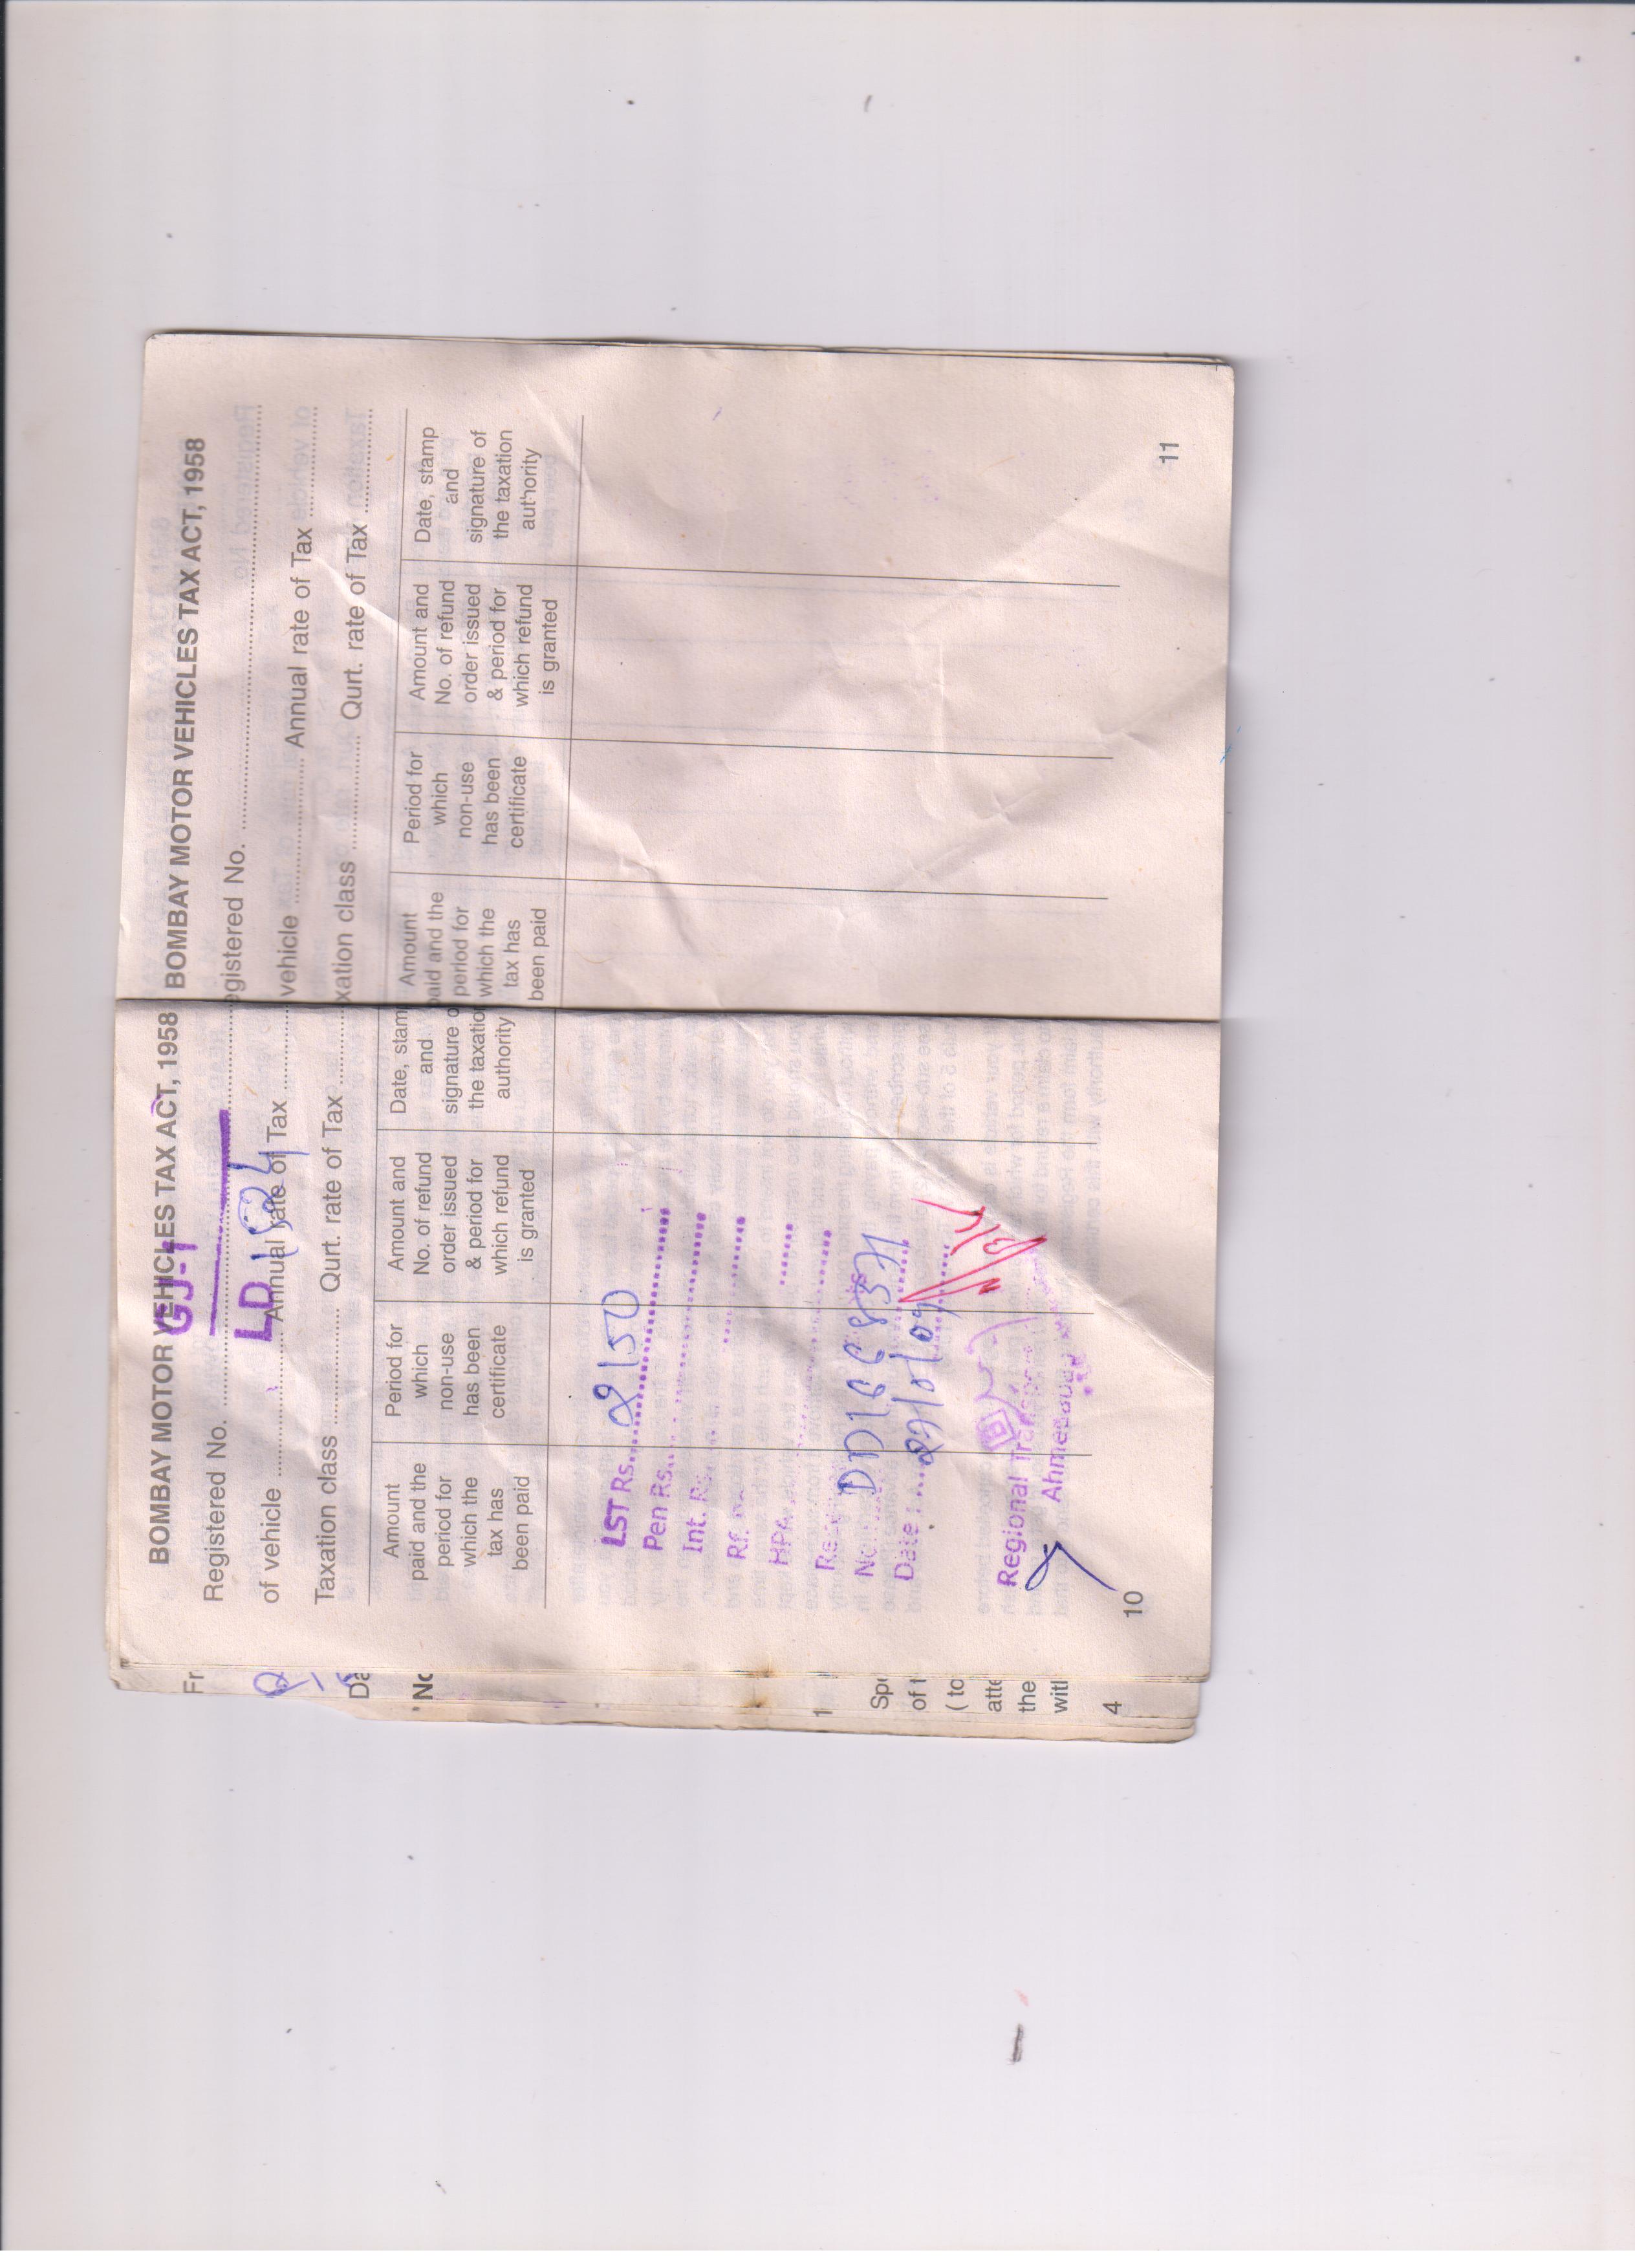 BOMBAY MOTOR VEHICLES TAX ACT, 1958
GJ-1
Registered No.
LD
of vehicle Annual rate of Tax
Taxation class Qurt. rate of Tax
Amount paid and the period for which the tax has been paid
Period for which non-use has been certificate
Amount and No. of refund order issued & period for which refund is granted
Date, stam and signature o the taxatio authority
LST Rs. 2150
Pen Rs.
Int. Rs.
Rf.
HPA
No.
Date :
Regional
Ahmedabad
10
BOMBAY MOTOR VEHICLES TAX ACT, 1958
egistered No.
vehicle Annual rate of Tax
xation class Qurt. rate of Tax
Amount paid and the period for which the tax has been paid
Period for which non-use has been certificate
Amount and No. of refund order issued & period for which refund is granted
Date, stamp and signature of the taxation authority
11
Fr
Da
No
1
Spe
of t
( to
atte
the
with
4